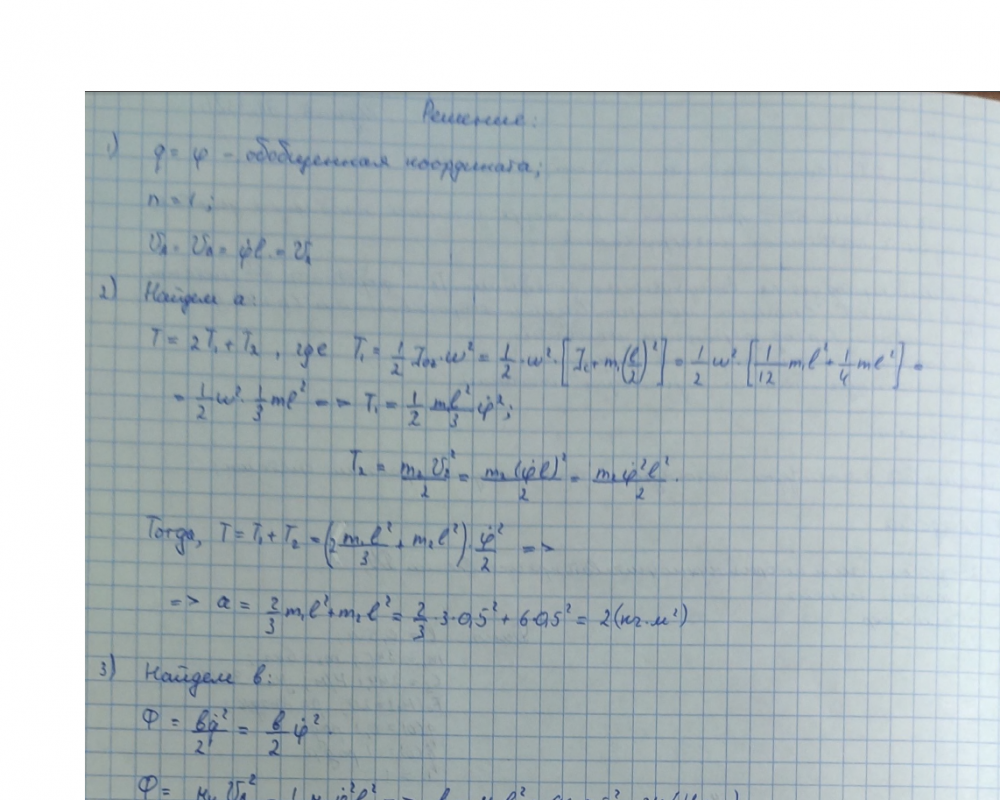 Решение:
1) q = φ – обобщенная координата;
n = 1;
V_A = V_A = φ̇l = V_2
2) Найдем a:
T = 2T₁ + T₂, где T₁ = 1/2 J₀₀ · ω² = 1/2 · ω² · [J_c + m₁(l/2)²] = 1/2 ω² · [1/12 m₁l² + 1/4 ml²] =
= 1/2 ω² · 1/3 ml² => T₁ = 1/2 ml²/3 φ̇²;
T₂ = m₂V₂²/2 = m₂(φ̇l)²/2 = m₂φ̇²l²/2.
Тогда, T = T₁ + T₂ = (2 m₁l²/3 + m₂l²) · φ̇²/2 =>
=> a = 2/3 m₁l² + m₂l² = 2/3 · 3 · 0,5² + 6 · 0,5² = 2 (кг·м²)
3) Найдем в:
Ф = вq̇²/2 = в/2 φ̇².
Ф =